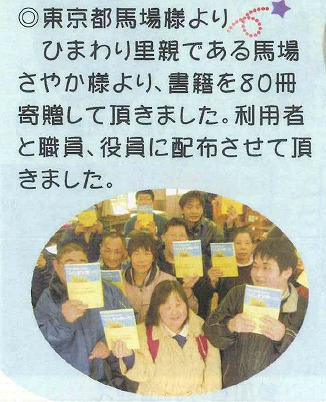 ◎東京都馬場様より
ひまわり里親である馬場
さやか様より、書籍を80冊
寄贈して頂きました。利用者
と職員、役員に配布させて頂
きました。